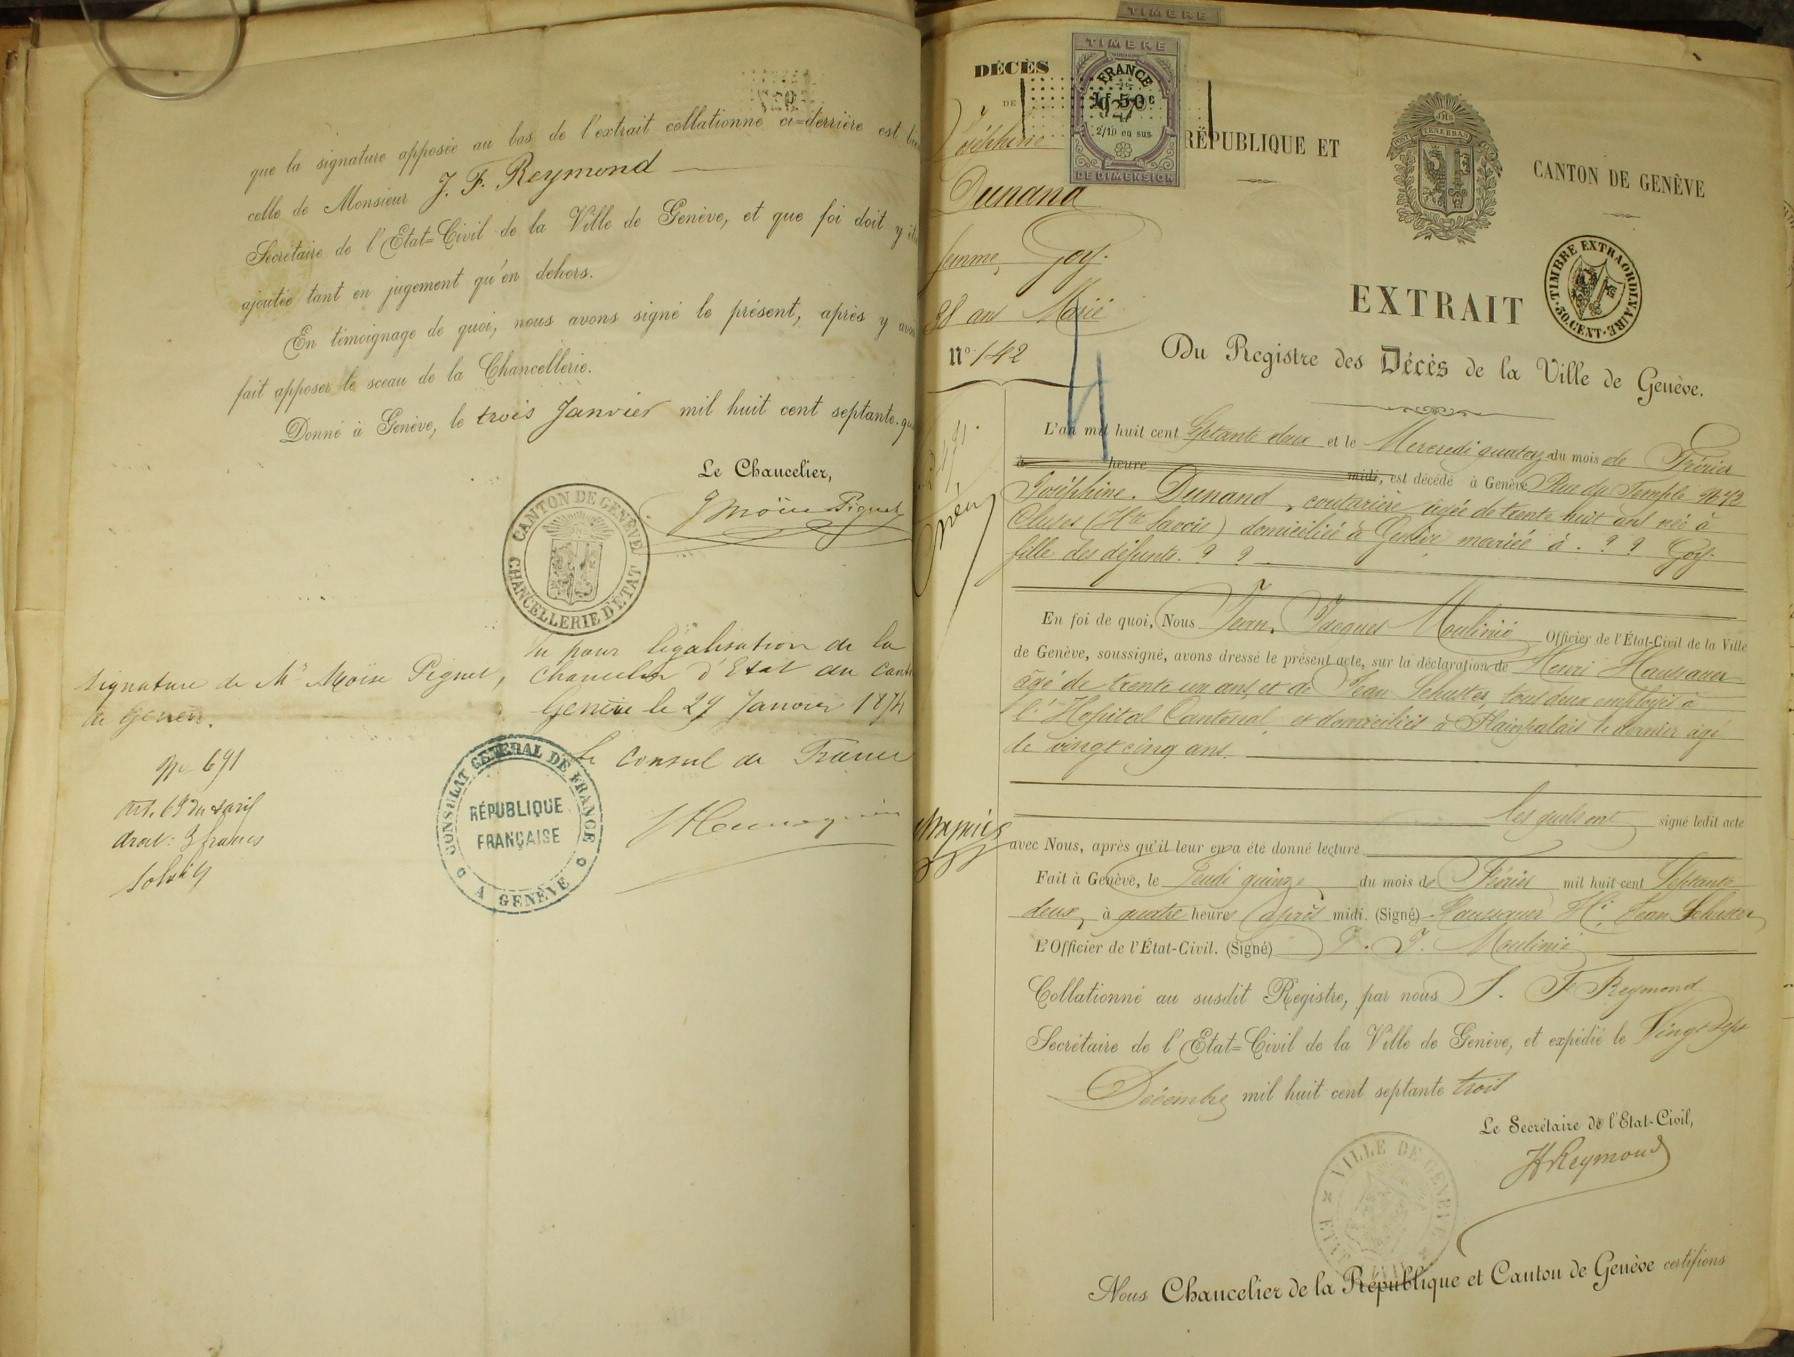 que la signature apposée au bas de l'extrait collationné ci=derrière est bien
celle de Monsieur J. F. Reymond
Secrétaire de l'Etat=Civil de la Ville de Genève, et que foi doit y être
ajoutée tant en jugement qu'en dehors.
En témoignage de quoi, nous avons signé le présent, après y avoir
fait apposer le sceau de la Chancellerie.
Donné à Genève, le trois Janvier mil huit cent septante-
Le Chancelier,
Moïse Piguet
CANTON DE GENÈVE
CHANCELLERIE D'ETAT
Vu pour légalisation de la
signature de Mr Moïse Piguet, Chancelier d'Etat du Canton
de Genève.
Genève le 29 Janvier 1874
Le Consul de France
No 691
Art. 69 du tarif
droit: 3 francs
CONSULAT GENERAL DE FRANCE
RÉPUBLIQUE
FRANÇAISE
A GENÈVE
TIMBRE
DÉCÈS
DE
Joséphine
Dunand
femme, Goy.
38 ans
No 142
4
TIMBRE
FRANCE
1f 50c
927
2/10 en sus
DE DIMENSION
RÉPUBLIQUE ET
CANTON DE GENÈVE
TIMBRE EXTRAORDINAIRE
30.CENT.
EXTRAIT
Du Registre des Décès de la Ville de Genève.
L'an mil huit cent Septante deux et le Mercredi quatorze du mois de Février
à heure midi, est décédé à Genève Rue du Temple
Joséphine. Dunand, couturière âgée de trente huit ans née à
Cluses (Hte Savoie) domiciliée à mariée à . ? ? Goy.
fille des défunts. ? ?
En foi de quoi, Nous Jean, Jacques Moulinié Officier de l'État-Civil de la Ville
de Genève, soussigné, avons dressé le présent acte, sur la déclaration de Henri Haussauer
âgé de trente un ans, et de Jean Schuster, tous deux employés à
l'Hôpital Cantonal, et domiciliés à Plainpalais le dernier âgé
de vingt cinq ans.
les quels ont signé ledit acte
avec Nous, après qu'il leur en a été donné lecture
Fait à Genève, le Jeudi quinze du mois de Février mil huit cent Septante
deux, à quatre heures après midi. (Signé) Haussauer Hi Jean Schuster,
L'Officier de l'État-Civil. (Signé) J. J. Moulinié
Collationné au susdit Registre, par nous J. F. Reymond
Secrétaire de l'Etat=Civil de la Ville de Genève, et expédié le Vingt sept
Décembre mil huit cent septante trois
Le Secrétaire de l'Etat-Civil,
JFReymond
VILLE DE GENÈVE
Nous Chancelier de la République et Canton de Genève certifions